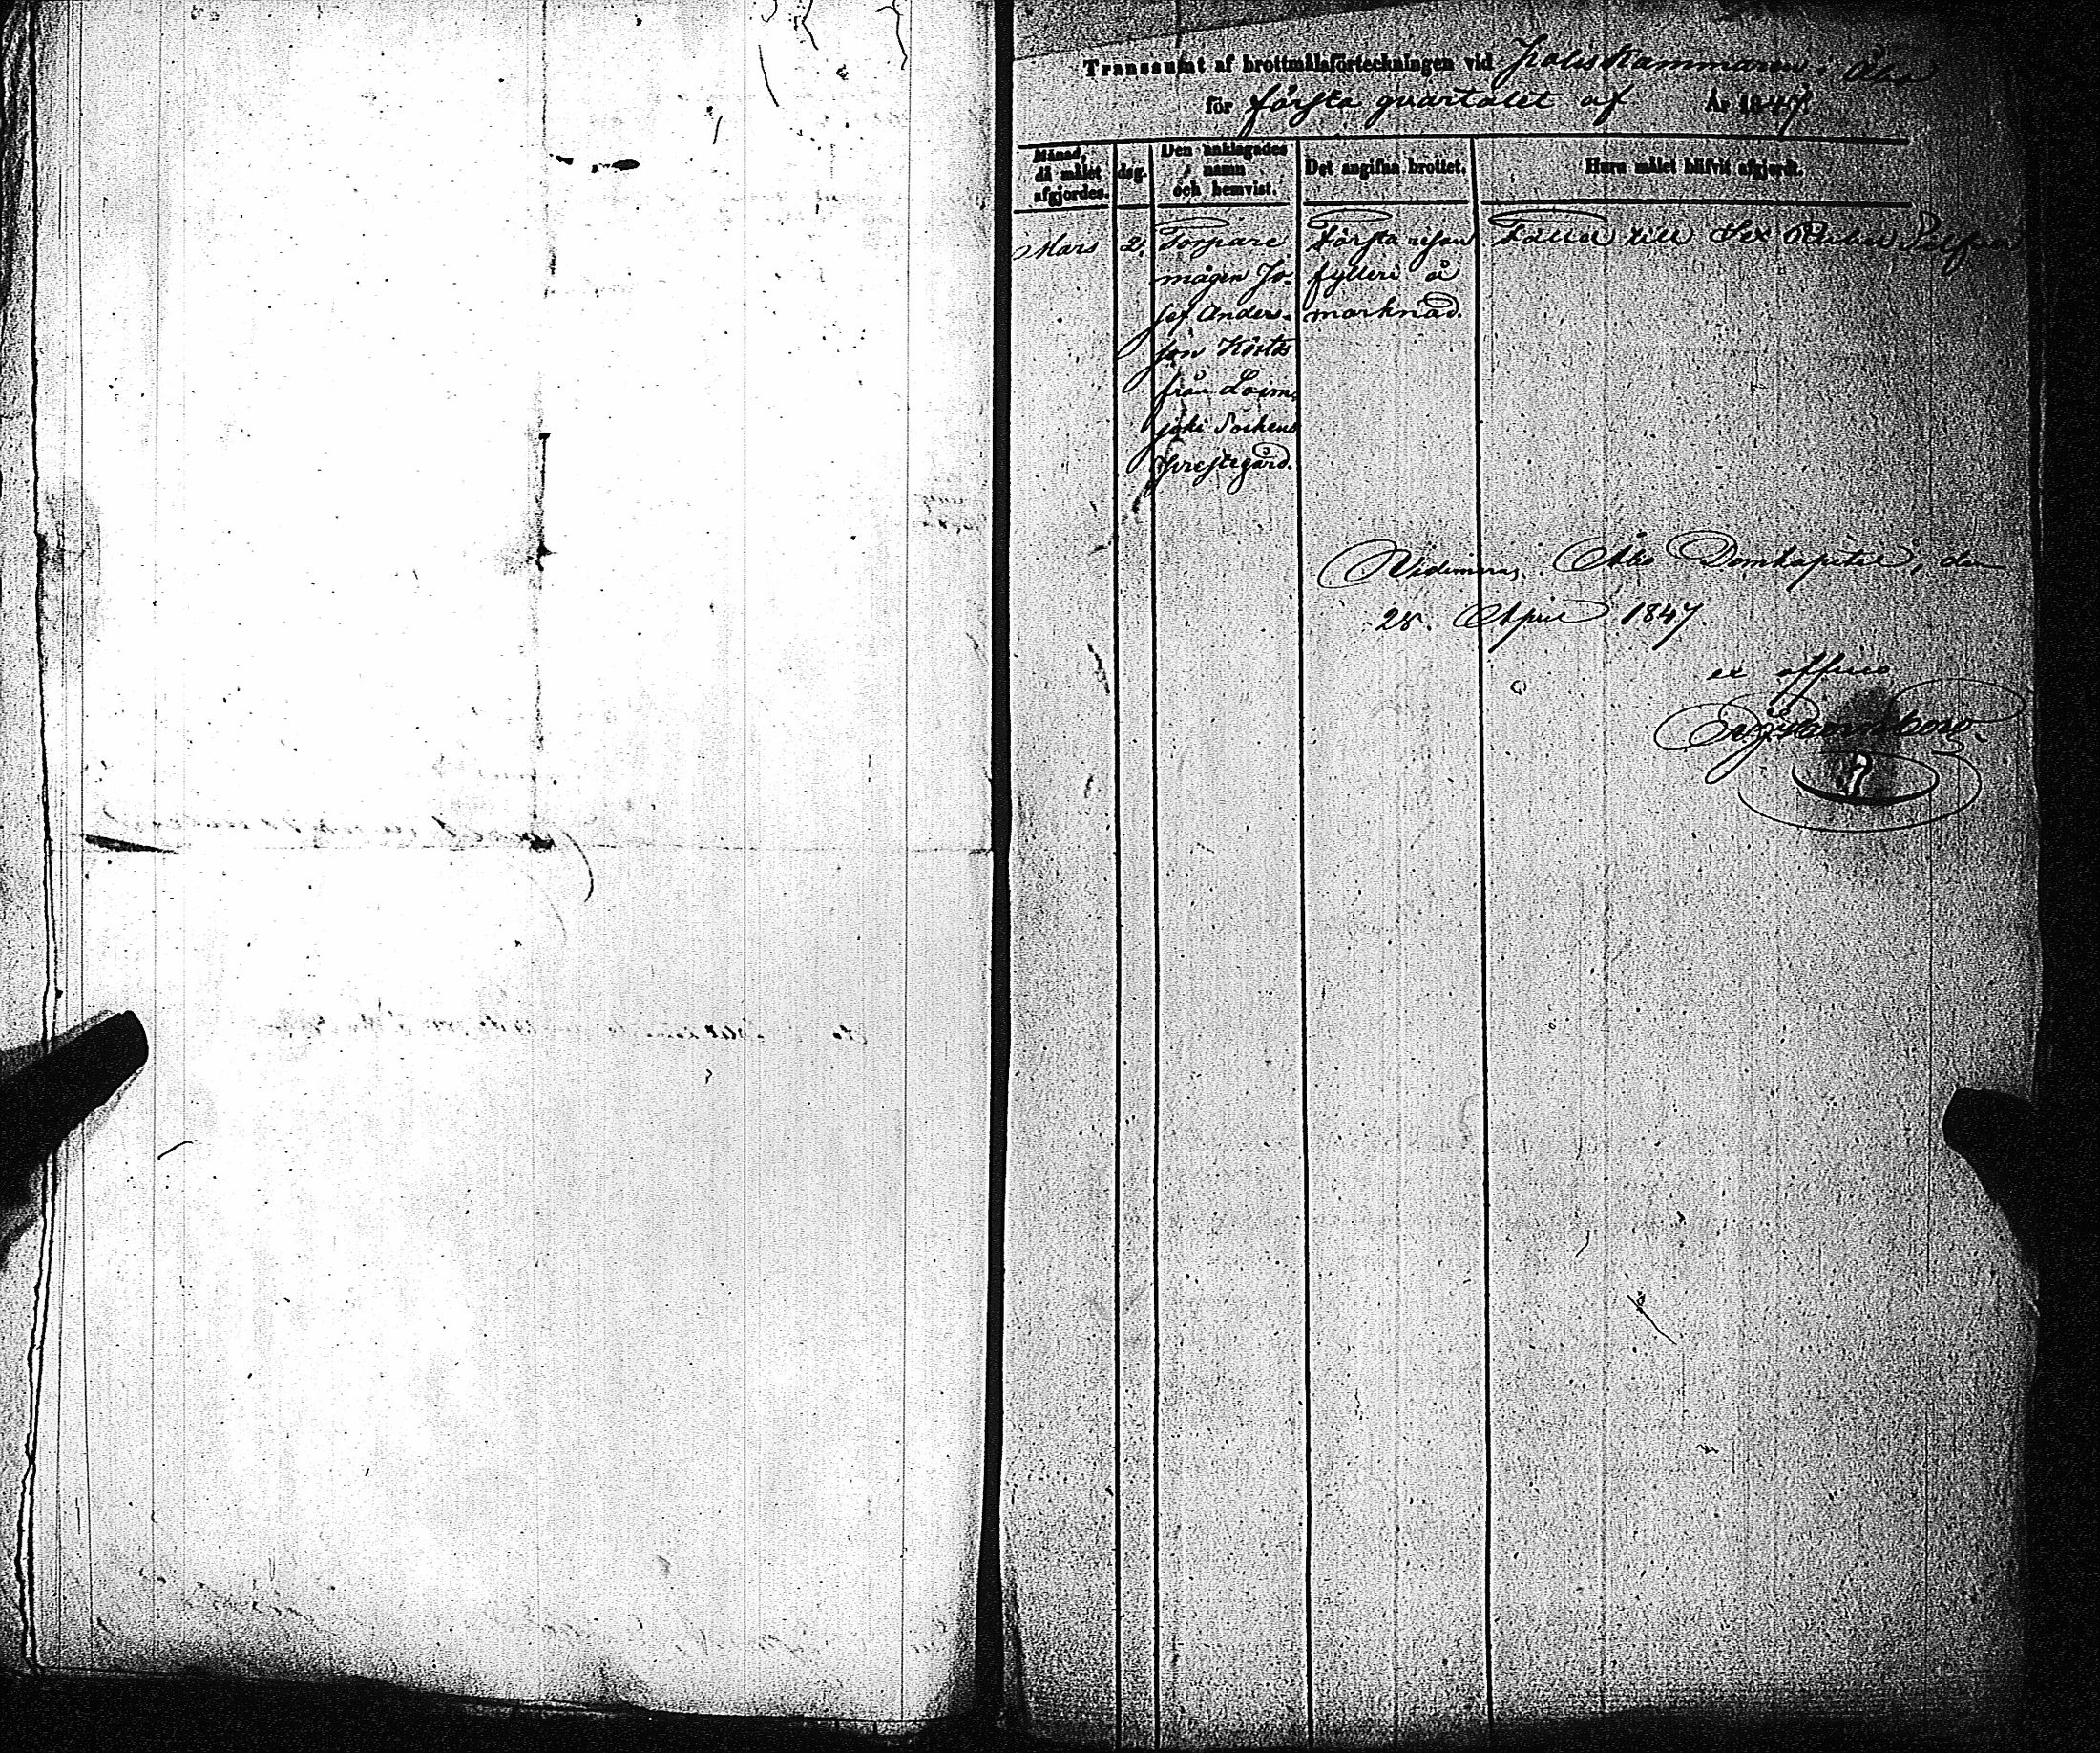 Transsumt af brottmålsförteckningen vid Poliskammaren i Åbo
för första qvartalet af År 1847.
Månad, då målet afgjordes.
dag.
Den anklagades namn och hemvist.
Det angifna brottet.
Huru målet blifvit afgjordt.
Mars 2. Torpare Första resan Fälld till Sex Rubel Silfver
mågen Jo- fylleri å
sef Anders- marknad.
son
från Loim-
joki Sockens
Prestegård.
Videmeras. Åbo Domkapitel, den
28. April 1847.
ex officio